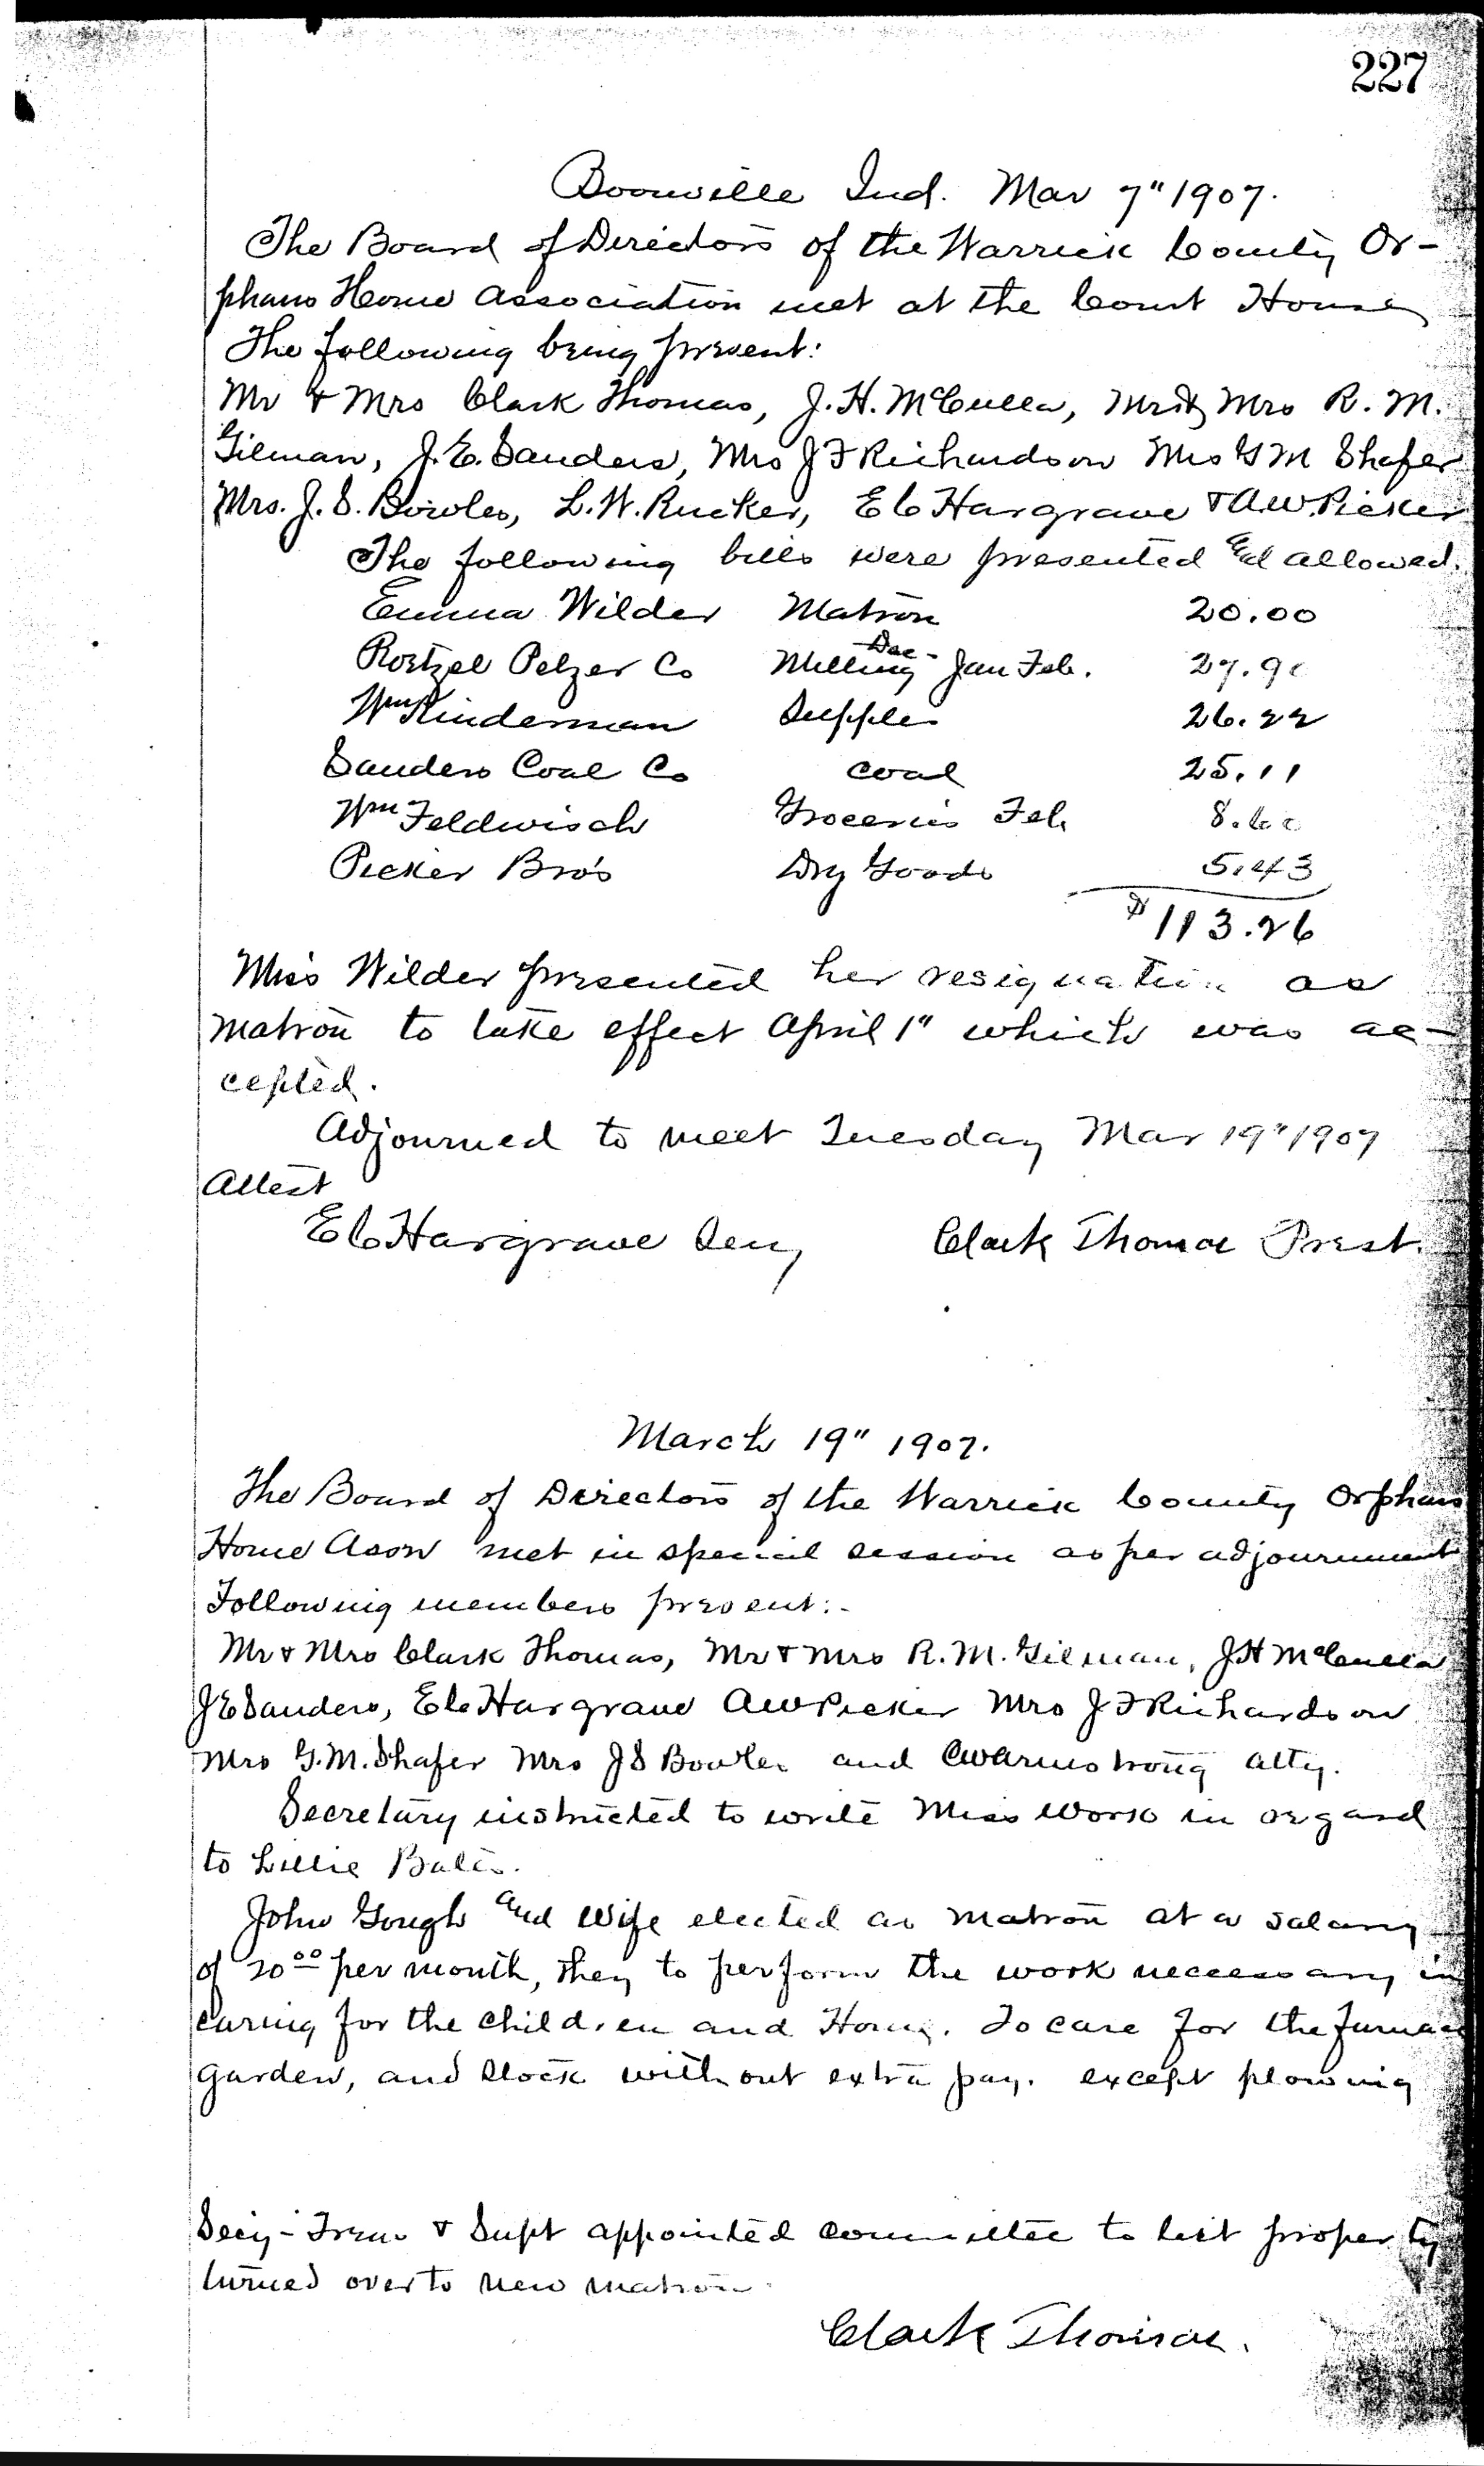 227
Boonville Ind. Mar 7" 1907.
The Board of Directors of the Warrick County Or-
phans Home Association met at the Court House
The following being present:
Mr & Mrs Clark Thomas, J. H. McCulla, Mr & Mrs R. M.
Gilman, J. E. Sanders, Mrs J F Richardson Mrs G M Shafer
Mrs. J. S. Bowles, L. W. Rucker, E C Hargrave & A W Picker
The following bills were presented and allowed.
Emma Wilder Matron 20.00
Roetzel Pelzer Co Milling Dec - Jan Feb. 27.90
Wm Kinderman Supplies 26.22
Sanders Coal Co coal 25.11
Wm Feldwisch Groceries Feb 8.60
Picker Bro's Dry Goods 5.43
$113.26
Miss Wilder presented her resignation as
matron to take effect April 1" which was ac-
cepted.
Adjourned to meet Tuesday Mar 19" 1907
Attest
E C Hargrave Secy Clark Thomas Prest.
March 19" 1907.
The Board of Directors of the Warrick County Orphans
Home Assn met in special session as per adjournment
Following members present:-
Mr & Mrs Clark Thomas, Mr & Mrs R. M. Gilman, J H McCulla
J E Sanders, E C Hargrave A W Picker Mrs J F Richardson
Mrs G. M. Shafer Mrs J S Bowles and C W Armstrong atty.
Secretary instructed to write Miss Work in regard
to Lillie Bates.
John Gough and wife elected as matron at a salary
of 20.00 per month, they to perform the work necessary in
caring for the children and Home. To care for the furnace
garden, and stock without extra pay. except plowing
Secy - Treas & Supt appointed committee to list property
turned over to new matron.
Clark Thomas.